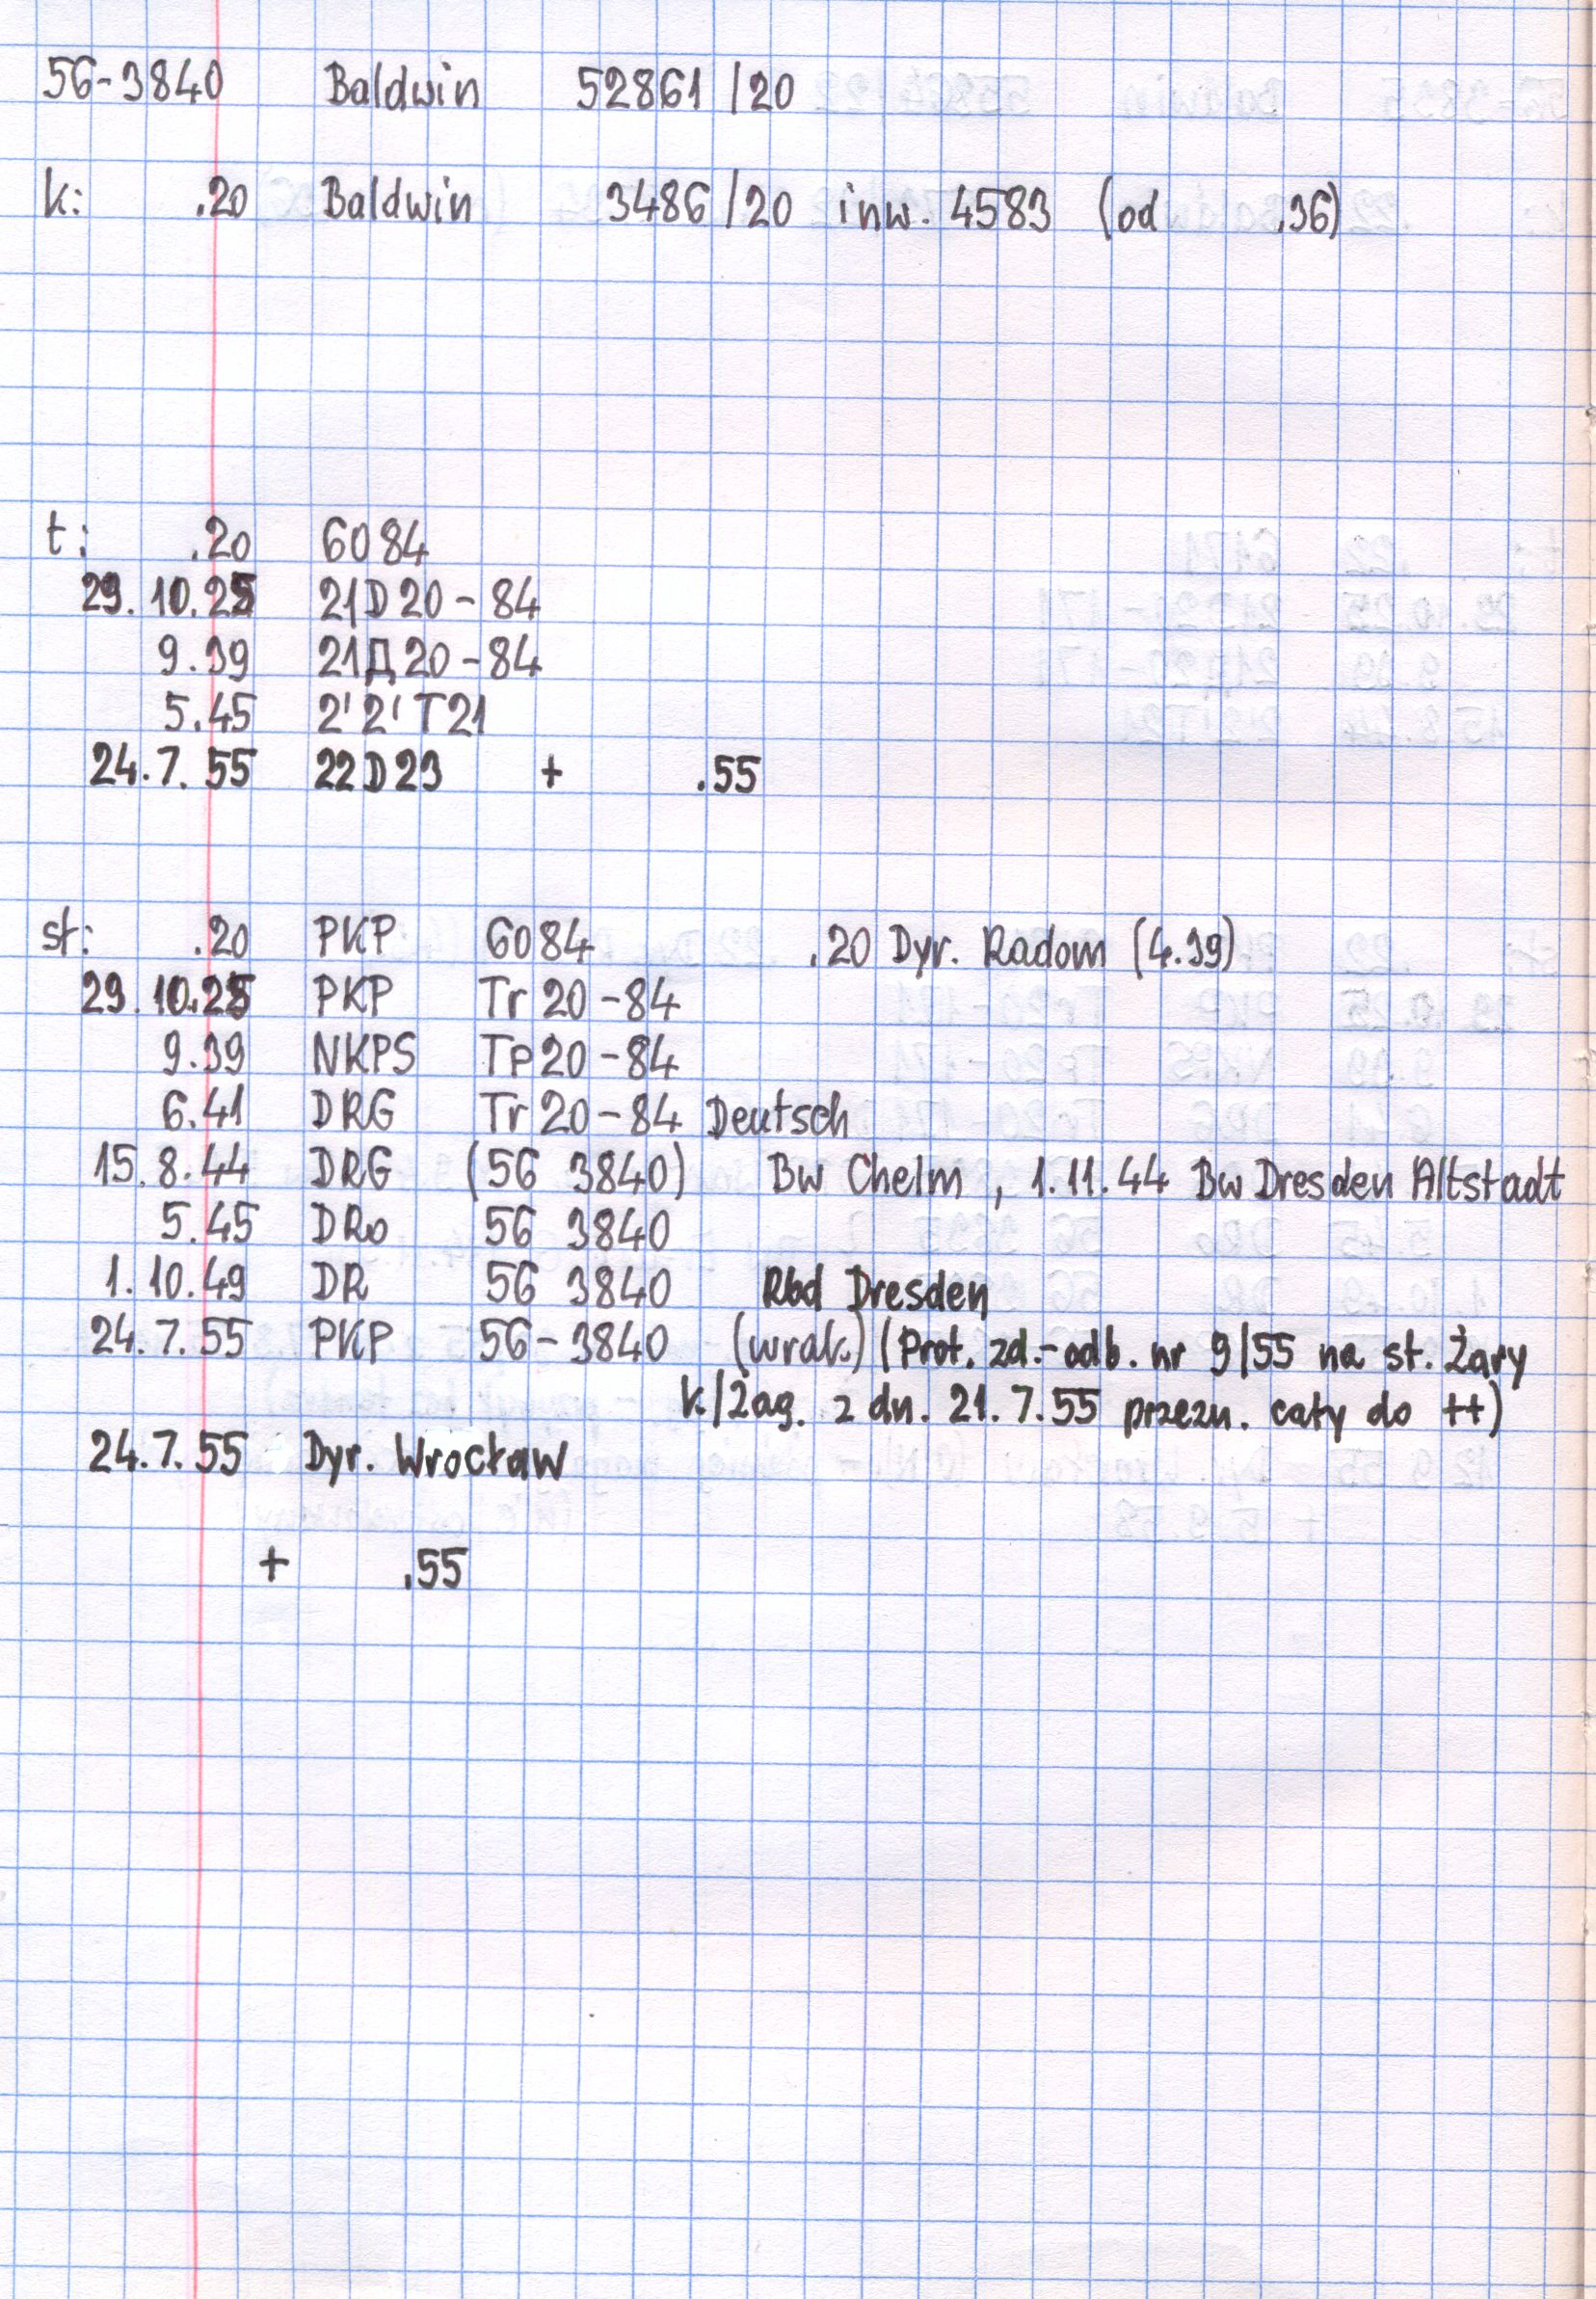 56-3840 Baldwin 52861/20
k: .20 Baldwin 3486/20 inw. 4583 (od .36)
t: .20 6084
29.10.25 21D20-84
9.39 21Д20-84
5.45 2'2'T21
24.7.55 22D23 + .55
st: .20 PKP 6084 .20 Dyr. Radom (4.39)
29.10.25 PKP Tr20-84
9.39 NKPS Tp20-84
6.41 DRG Tr20-84 Deutsch
15.8.44 DRG (56 3840) Bw Chelm, 1.11.44 Bw Dresden Altstadt
5.45 DRo 56 3840
1.10.49 DR 56 3840 Rbd Dresden
24.7.55 PKP 56-3840 (wrak) (Prot. zd.-odb. nr 9/55 na st. Żary
k/Żag. z dn. 21.7.55 przezn. cały do ++)
24.7.55 Dyr. Wrocław
+ .55